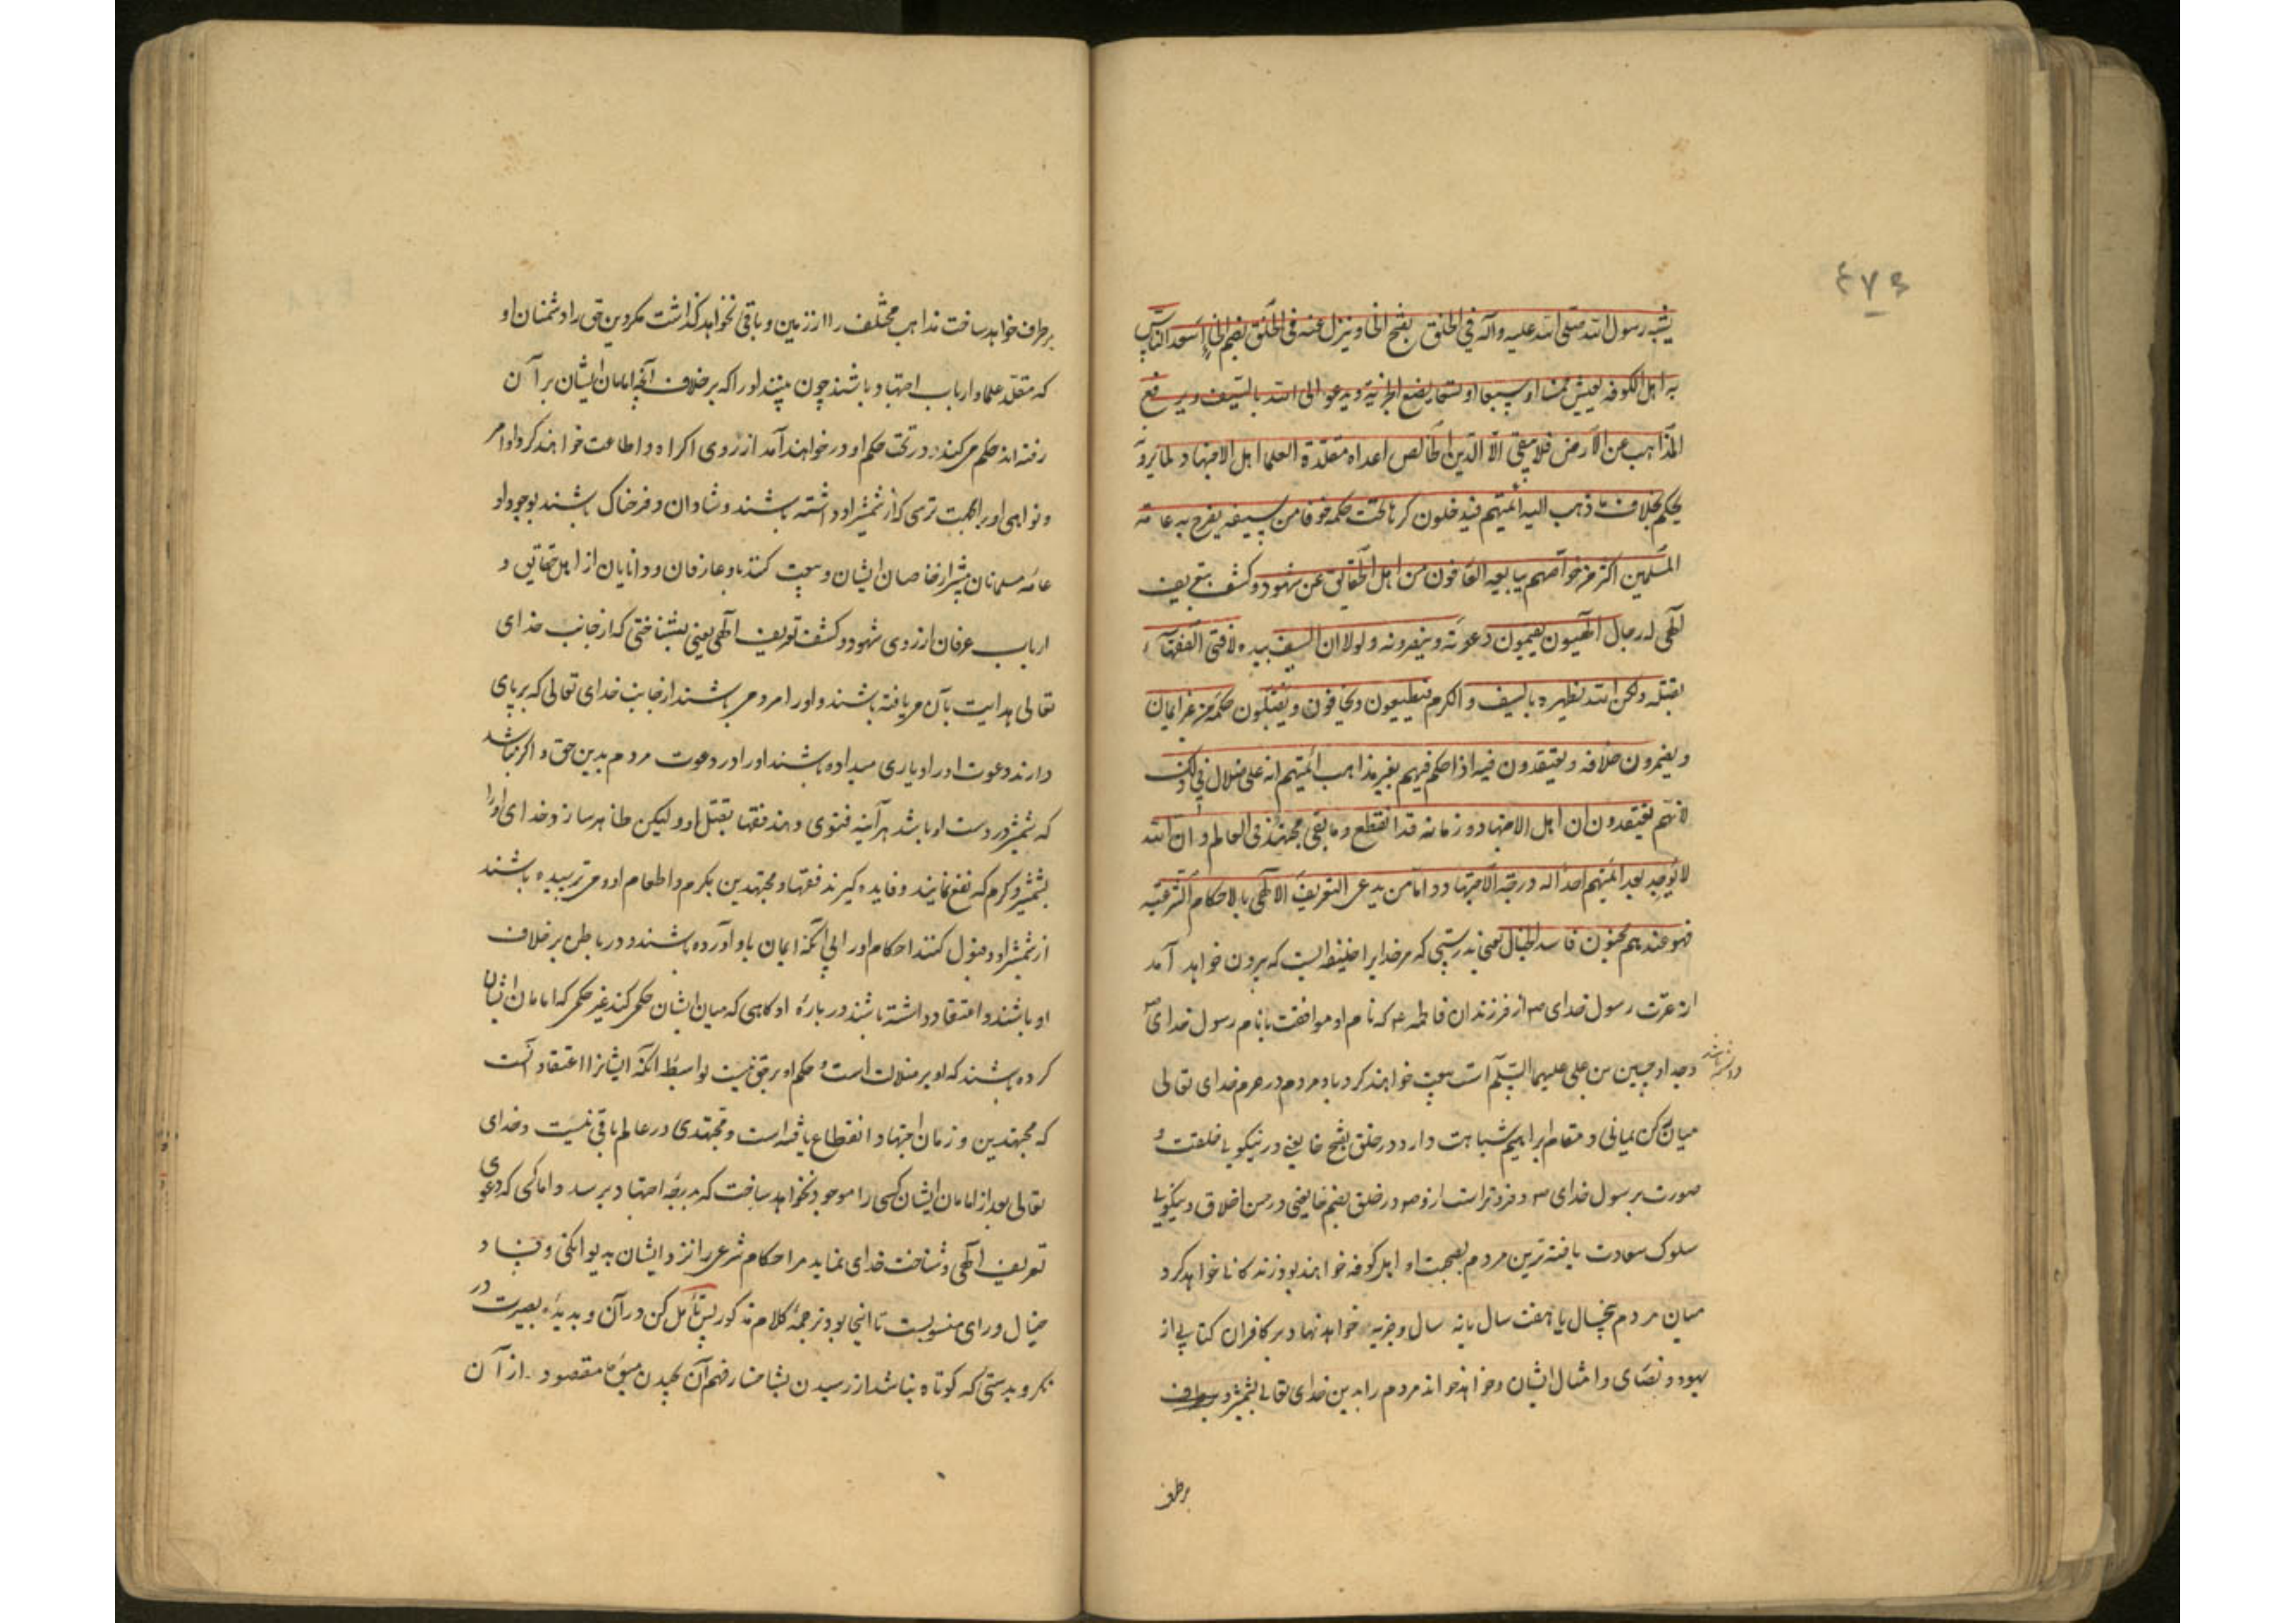 ۴۷۶
یشبه رسول الله صلی الله علیه وآله فی الخلق بفتح الخا وینزل عنه فی الخلق بضم الخاء اسعد الناس
به اهل الکوفه یعیش خمسا او سبعا او تسعا یضع الجزیة ویدعو الی الله بالسیف ویرفع
المذاهب عن الارض فلا یبقی الّا الدّین الخالص اعداه مقلّدة العلما اهل الاجتهاد لما یرونه
یحکم بخلاف ما ذهب الیه ائمتهم فیدخلون کرها تحت حکمه خوفا من سیفه یفرح به عامة
المسلمین اکثر من خواصهم یبایعه العارفون من اهل الحقایق عن شهود وکشف بتعریف
الهی له رجال الهیون یقیمون دعوته وینصرونه ولولا ان السیف بیده لافتی الفقهاء
بقتله ولکن الله یظهره بالسیف والکرم فیطیعون ویخافون ویقبلون حکمه من غیر ایمان
ویضمرون خلافه ویعتقدون فیه اذا حکم فیهم بغیر مذاهب ائمتهم انه علی ضلال فی ذلک
لانهم یعتقدون ان اهل الاجتهاد و زمانه قد انقطع وما بقی مجتهد فی العالم وان الله
لا یوجد بعد ائمتهم احدا له درجة الاجتهاد واما من یدعی التعریف الالهی بالاحکام الشرعیه
فهو عندهم مجنون فاسد الخیال یعنی بدرستی که مر خدایرا خلیفه ایست که بیرون خواهد آمد
از عترت رسول خدای ص از فرزندان فاطمه ع که نام او موافقست با نام رسول خدای ص
وجد او حسین بن علی علیهما السّلم است بیعت خواهند کرد با او مردم در حرم خدای تعالی
میان رکن یمانی و مقام ابراهیم شباهت دارد در خلق بفتح خا یعنی در نیکویی خلقت و
صورت برسول خدای ص و فروتر است از و ص در خلق بضم خا یعنی در حسن اخلاق و نیکویی
سلوک سعادت یافته ترین مردم بصحبت او اهل کوفه خواهند بود زندکانی خواهد کرد
میان مردم پنجسال یا هفت سال یا نه سال و جزیه خواهد نهاد بر کافران کتابی از
یهود و نصاری و امثال ایشان و خواهد خواند مردم را بدین خدای تعالی بشمشیر و برطرف
برطرف
برطرف خواهد ساخت مذاهب مختلف را از زمین و باقی نخواهد گذاشت مکر دین حق را دشمنان او
که مقلّد علما و ارباب اجتهاد باشند چون بینند او را که بر خلاف آنچه امامان ایشان بر آن
رفته اند حکم می کند در تحت حکم او در خواهند آمد از روی اکراه و اطاعت خواهند کرد اوامر
و نواهی او را بجهت ترسی که از شمشیر او داشته باشند و شادان و فرحناک باشند بوجود او
عامه مسلمانان بیشتر از خاصان ایشان و بیعت کنند باو عارفان و دانایان از اهل حقایق و
ارباب عرفان از روی شهود و کشف و تعریف الهی یعنی بشناختی که از جانب خدای
تعالی هدایت بآن می یافته باشند و او را مردمی باشند از جانب خدای تعالی که بر پای
دارند دعوت او را و یاری میداده باشند او را در دعوت مردم بدین حق و اگر نباشد
که شمشیر در دست او باشد هر آینه فتوی دهند فقها بقتل او و لیکن ظاهر سازد خدای او را
بشمشیر و کرم که نفع نمایند و فایده گیرند فقها و مجتهدین بکرم و اطعام او و می ترسیده باشند
از شمشیر او و قبول کنند احکام او را بی آنکه ایمان باو آورده باشند و در باطن بر خلاف
او باشند و اعتقاد داشته باشند در بارهٔ او کاهی که میان ایشان حکمی کند غیر حکمی که امامان ایشان
کرده باشند که او بر ضلالت است و حکم او بر حق نیست بواسطه آنکه ایشانرا اعتقاد آنست
که مجتهدین و زمان اجتهاد انقطاع یافته است و مجتهدی در عالم باقی نیست و خدای
تعالی بعد از امامان ایشان کسی را موجود نخواهد ساخت که بدرجهٔ اجتهاد برسد و اما کسی که دعوی
تعریف الهی و شناخت خدای نماید مر احکام شرعی را نزد ایشان بدیوانکی و فساد
خیال و رای منسوبست تا اینجا بود ترجمهٔ کلام مذکور پس تأمل کن در آن و بدیدهٔ بصیرت در
نکر و بدرستی که کوتاه نباشد از رسیدن مقصود از آن